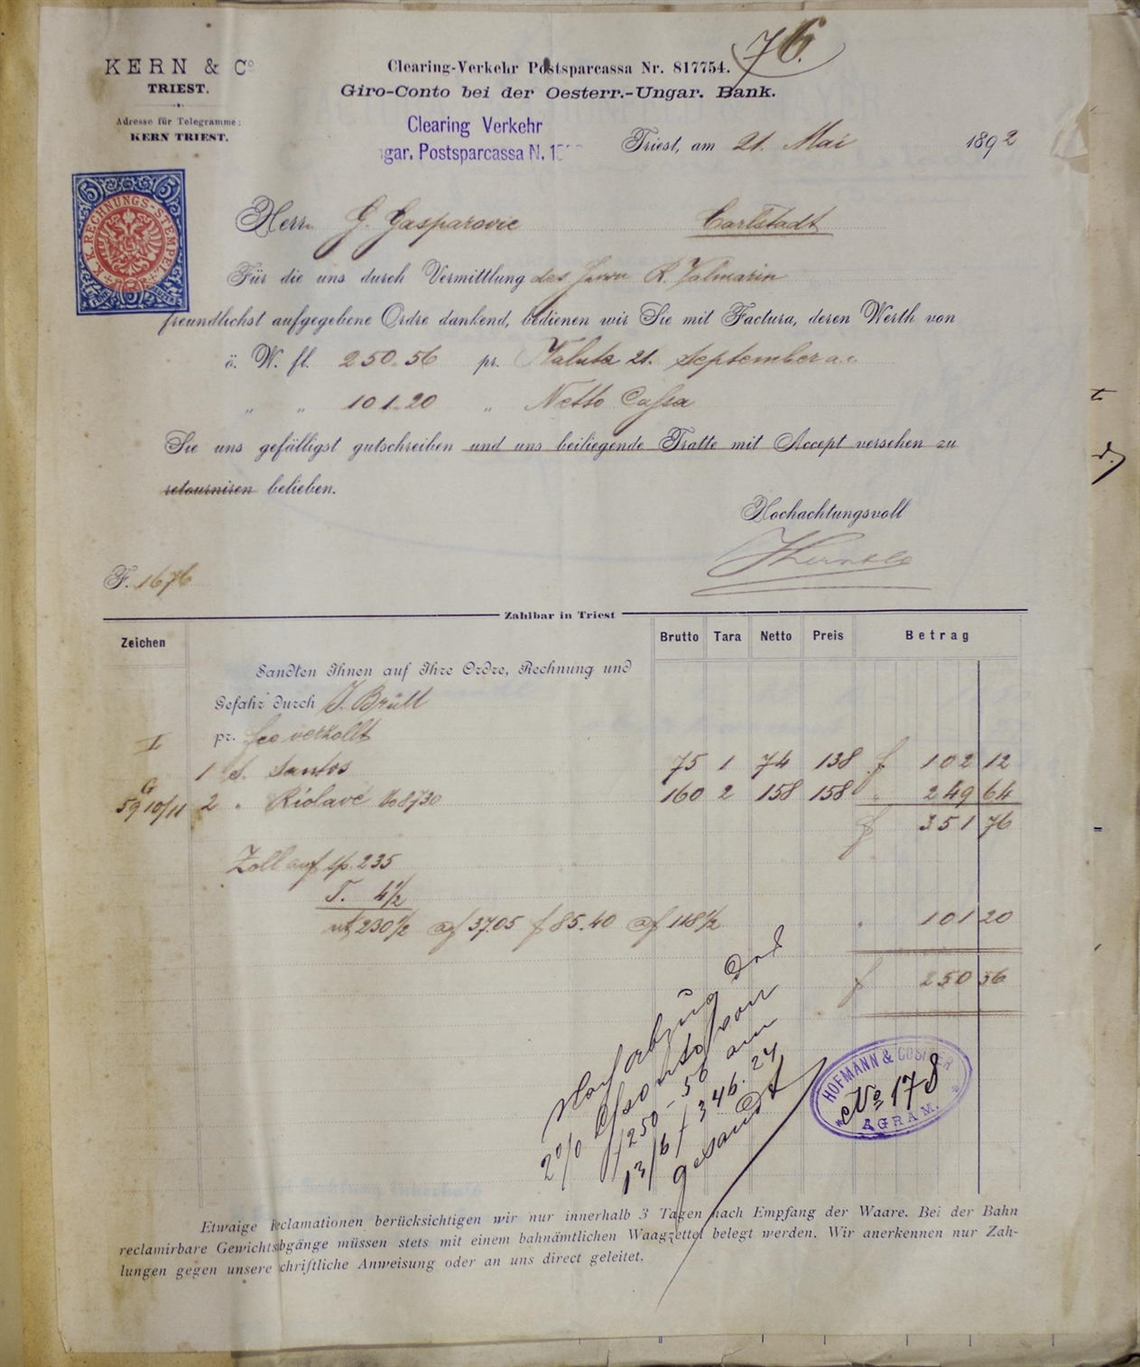 76.
KERN & Co
TRIEST.
Adresse für Telegramme:
KERN TRIEST.
Clearing-Verkehr Postsparcassa Nr. 817754.
Giro-Conto bei der Oesterr.-Ungar. Bank.
Clearing Verkehr
gar. Postsparcassa N.
Triest, am 21. Mai 1892
5 5
K. K. RECHNUNGS-STEMPEL
5
Herrn G. Gasparovic Carlstadt
Für die uns durch Vermittlung des Herrn R. Valmarin
freundlichst aufgegebene Ordre dankend, bedienen wir Sie mit Factura, deren Werth von
ö. W. fl. 250.56 pr. Valuta 21. September a.c.
„ „ 101.20 „ Netto Cassa
Sie uns gefälligst gutschreiben und uns beiliegende Tratte mit Accept versehen zu
retourniren belieben.
Hochachtungsvoll
F. 1676
Zahlbar in Triest
Zeichen Brutto Tara Netto Preis Betrag
Sandten Ihnen auf Ihre Ordre, Rechnung und
Gefahr durch J. Brüll
pr. fco verzollt
I 1 S. Santos 75 1 74 138 f 102 12
G 59 10/11 2 „ 160 2 158 158 „ 249 64
f 351 76
Zoll auf sp. 235
T. 4½
230½ 37.05 f 85.40 118½ „ 101 20
f 250 56
2%
f 250-56
13/6 f 346.24
gesandt
HOFMANN &
No 178
AGRAM.
Etwaige Reclamationen berücksichtigen wir nur innerhalb 3 Tagen nach Empfang der Waare. Bei der Bahn
reclamirbare Gewichtsabgänge müssen stets mit einem bahnämtlichen Waagzettel belegt werden. Wir anerkennen nur Zah-
lungen gegen unsere schriftliche Anweisung oder an uns direct geleitet.